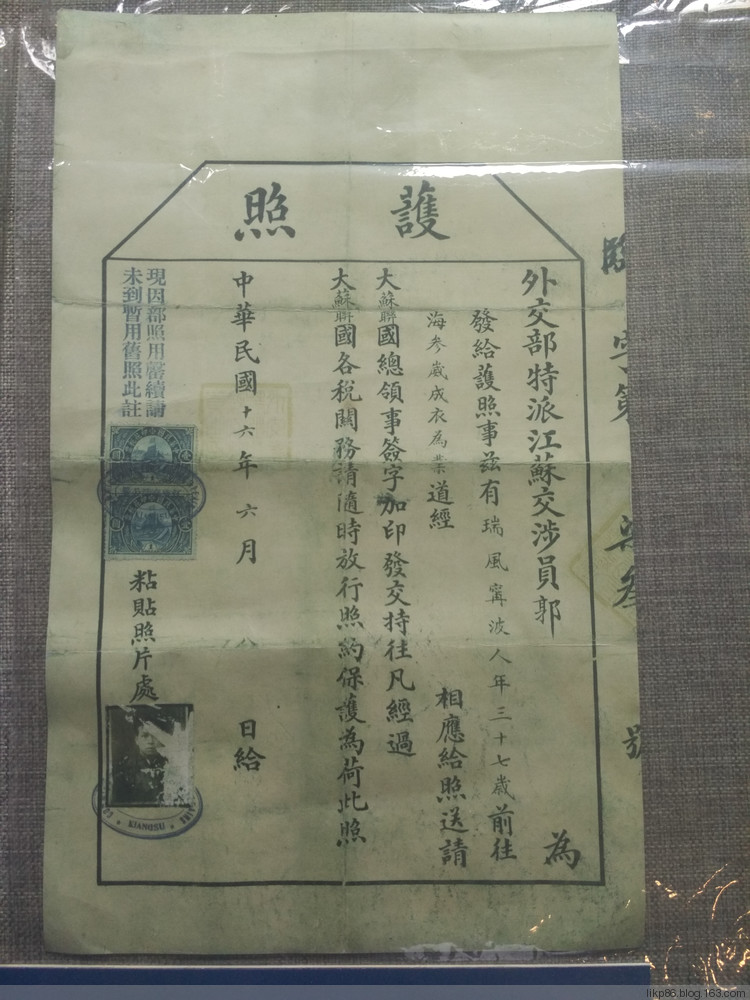 護照
外交部特派江蘇交涉員郭 為
發給護照事茲有瑞風寗波人年三十七歲前往
海參崴成衣為業道經 相應給照送請
大蘇聯國總領事簽字加印發交持往凡經過
大蘇聯國各稅關務請隨時放行照約保護為荷此照
中華民國十六年六月八日給
現因部照用罄續請
未到暫用舊照此註
粘貼照片處
KIANGSU
字第 號
likp86.blog.163.com